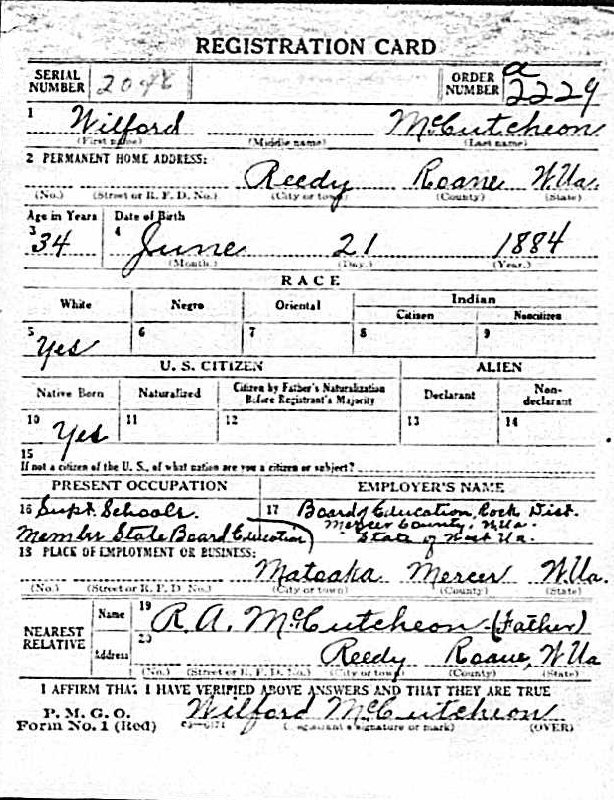 REGISTRATION CARD
SERIAL NUMBER 2098 ORDER NUMBER a 2229
1 Wilford McCutcheon
(First name) (Middle name) (Last name)
2 PERMANENT HOME ADDRESS:
Reedy Roane W Va.
(No.) (Street or R. F. D. No.) (City or town) (County) (State)
Age in Years Date of Birth
3 34 4 June 21 1884
(Month.) (Day.) (Year.)
RACE
White Negro Oriental Indian
Citizen Noncitizen
5 Yes 6 7 8 9
U. S. CITIZEN ALIEN
Native Born Naturalized Citizen by Father's Naturalization Before Registrant's Majority Declarant Non-declarant
10 Yes 11 12 13 14
15
If not a citizen of the U. S., of what nation are you a citizen or subject?
PRESENT OCCUPATION EMPLOYER'S NAME
16 Supt. Schools. 17 Board of Education, Rock Dist.
Mercer County, W.Va.
Member State Board Education State of West Va.
18 PLACE OF EMPLOYMENT OR BUSINESS:
Matoaka Mercer W Va.
(No.) (Street or R. F. D. No.) (City or town) (County) (State)
NEAREST RELATIVE Name 19 R. A. McCutcheon (Father)
Address 20 Reedy Roane, W Va
(No.) (Street or R. F. D. No.) (City or town) (County) (State)
I AFFIRM THAT I HAVE VERIFIED ABOVE ANSWERS AND THAT THEY ARE TRUE
P. M. G. O.
Form No. 1 (Red) Wilford McCutcheon
(Registrant's signature or mark) (OVER)